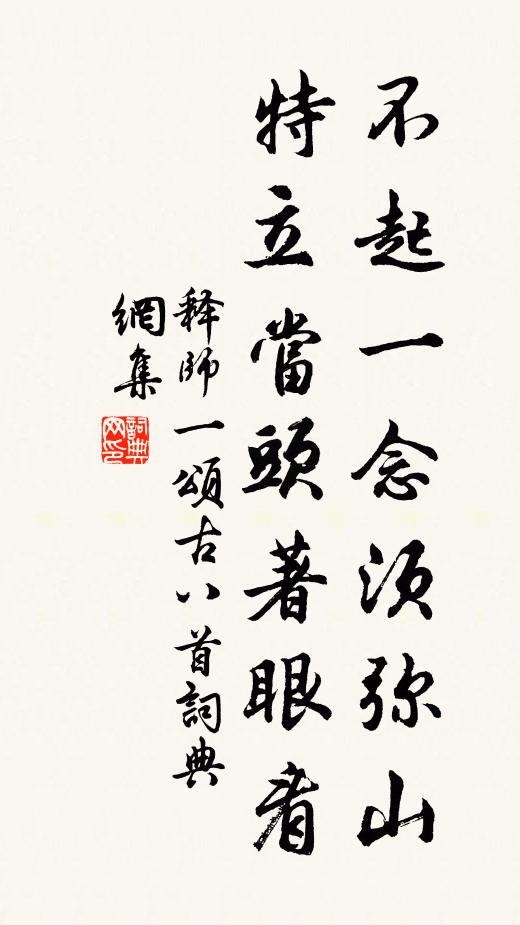 不起一念须弥山
特立當頭著眼看
释師一頌古八首詞典
網集
詞典网印